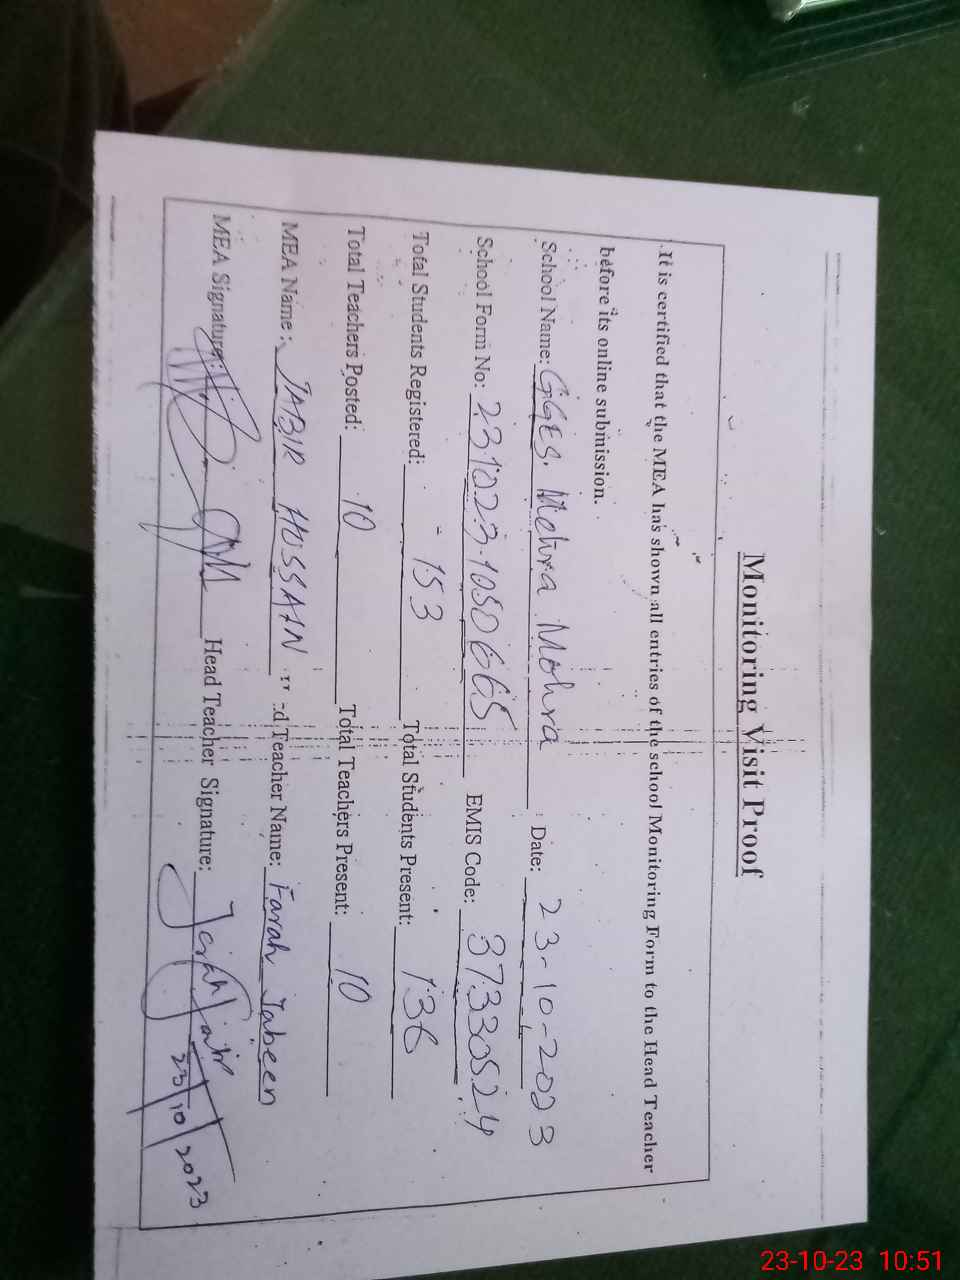 Monitoring Visit Proof
It is certified that the MEA has shown all entries of the school Monitoring Form to the Head Teacher
before its online submission.
School Name: GGES. Mehra Mohra Date: 23-10-2023
School Form No: 231023-1050665 EMIS Code: 37330524
Total Students Registered: 153 Total Students Present: 136
Total Teachers Posted: 10 Total Teachers Present: 10
MEA Name: JABIR HUSSAIN d Teacher Name: Farah Jabeen
MEA Signature: Head Teacher Signature:
23/10/2023
23-10-23 10:51